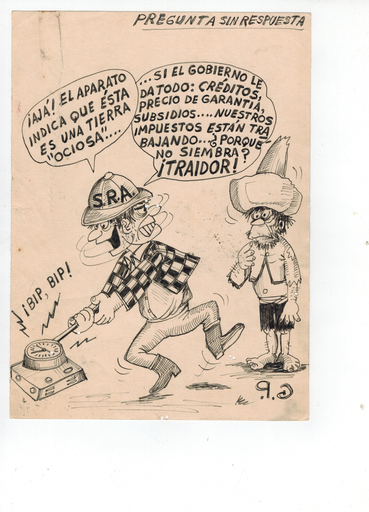 PREGUNTA SIN RESPUESTA
¡AJÁ! EL APARATO
INDICA QUE ÉSTA
ES UNA TIERRA
"OCIOSA"....
...SI EL GOBIERNO LE
DA TODO: CRÉDITOS,
PRECIO DE GARANTÍA,
SUBSIDIOS.... NUESTROS
IMPUESTOS ESTÁN TRA
BAJANDO...¿PORQUÉ
NO SIEMBRA?
¡TRAIDOR!
S.R.A.
¡BIP, BIP!